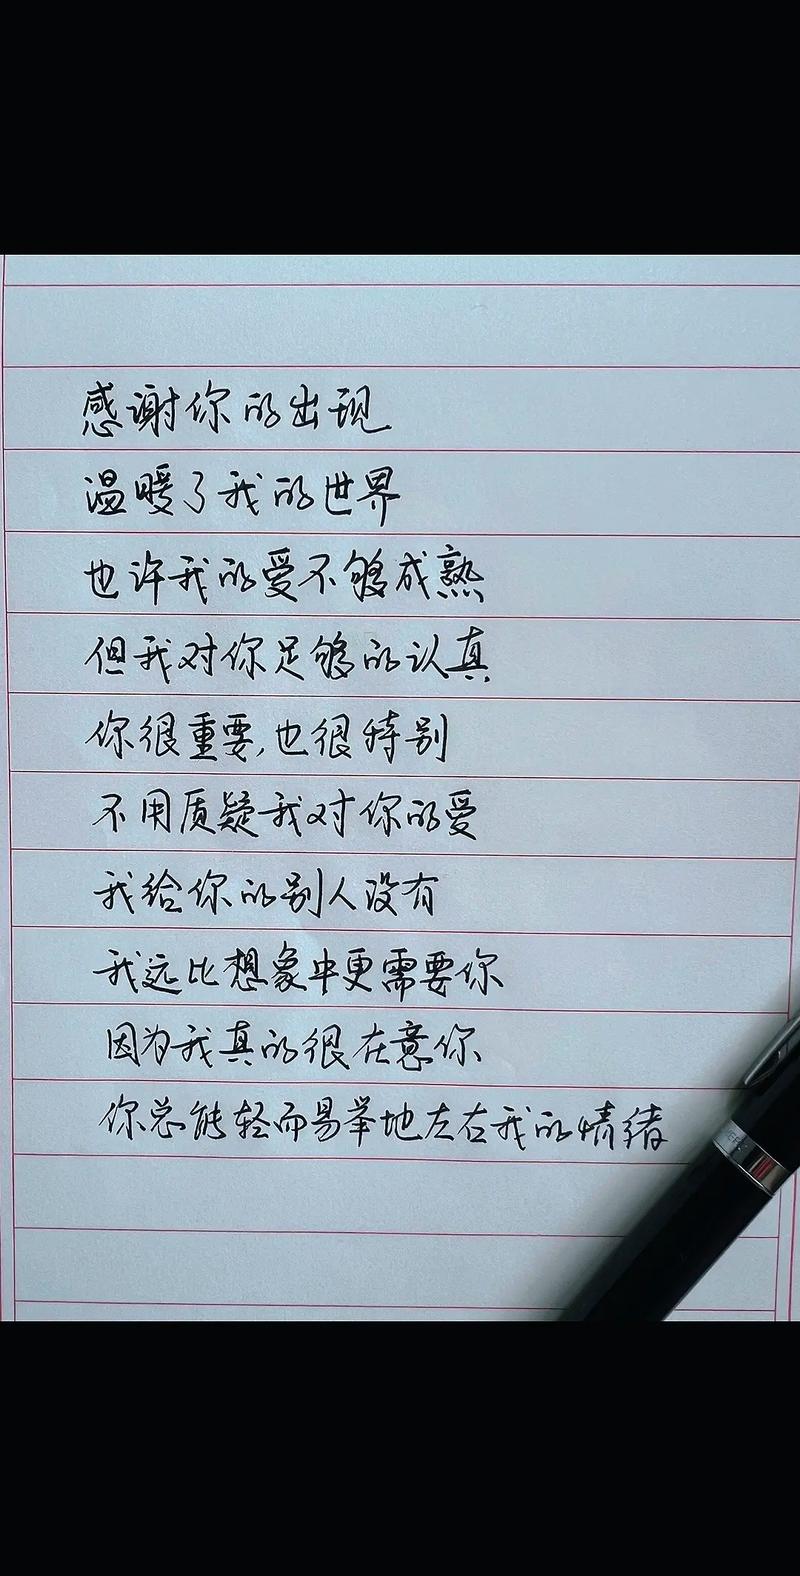 感谢你的出现
温暖了我的世界
也许我的爱不够成熟
但我对你足够的认真
你很重要,也很特别
不用质疑我对你的爱
我给你的别人没有
我远比想象中更需要你
因为我真的很在意你
你总能轻而易举地左右我的情绪